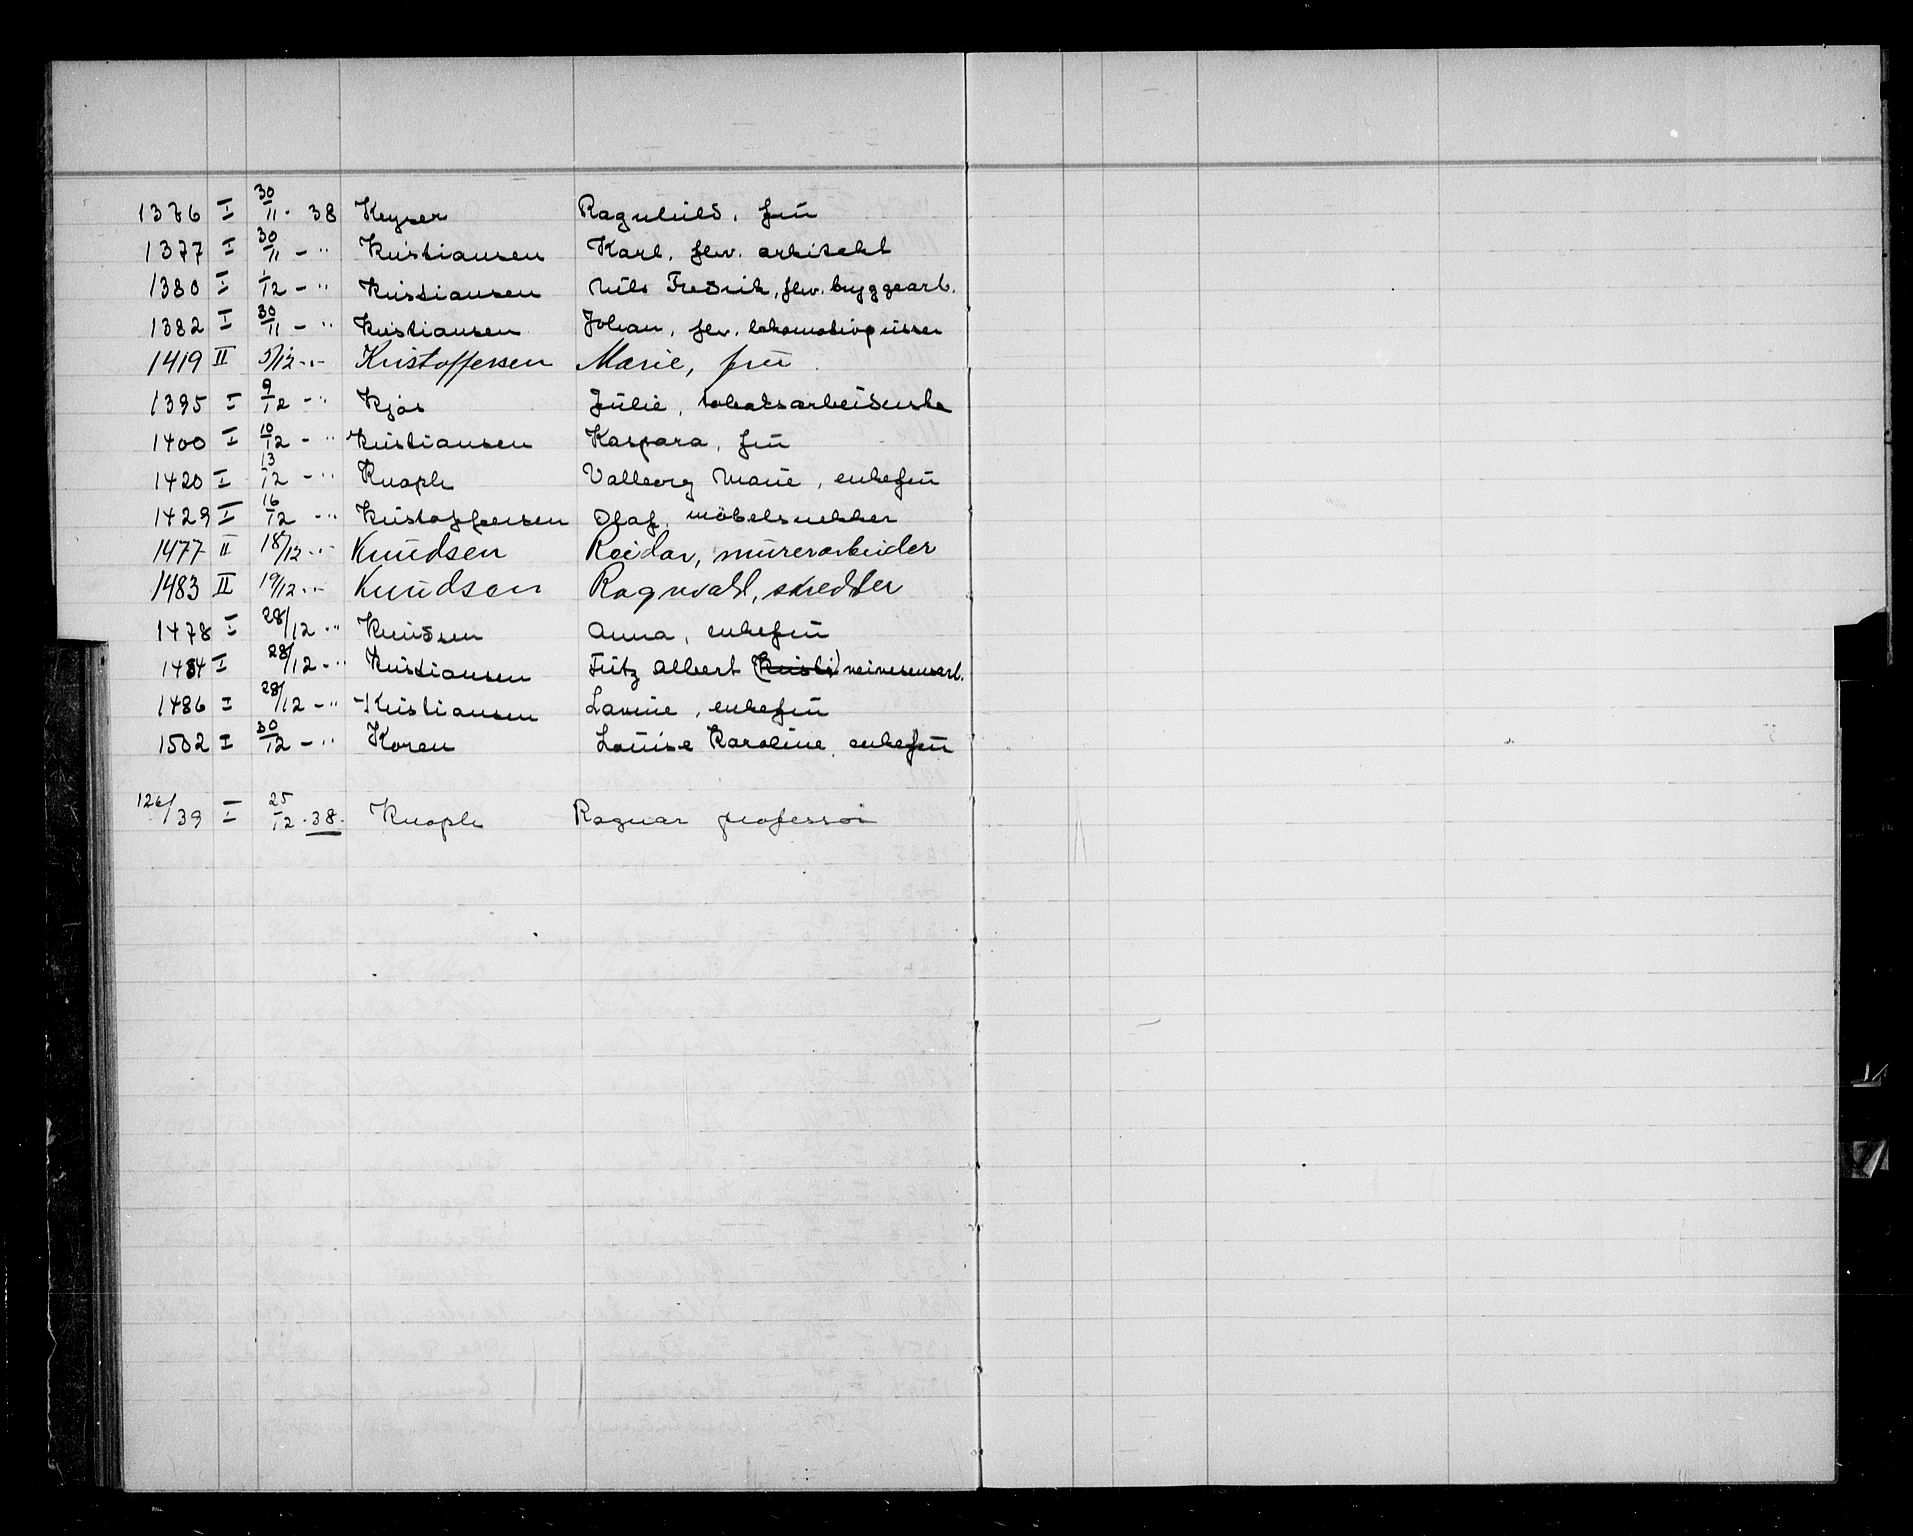 1376 I 30/11 - 38 Keyser Ragnhild, frü
1377 I 30/11 - " Kristiansen Karl, fhv. arkitekt
1380 I 1/12 - " Kristiansen Nils Fredrik, fhv. bryggearb.
1382 I 30/11 - " Kristiansen Johan, fhv. lokomotivpusser
1419 II 5/12 - " Kristoffersen Marie, frü
1395 I 9/12 - " Kjos Jülie, tobaksarbeiderske
1400 I 10/12 - " Kristiansen Kaspara, frü
1420 I 13/12 - " Knoph Valborg Marie, enkefrü
1429 I 16/12 - " Kristoffersen Olaf, möbelsnekker
1477 II 18/12 - " Knüdsen Reidar, mürerarbeider
1483 II 19/12 - " Knüdsen Ragnvald, skredder
1478 I 28/12 - " Knüdsen Anna, enkefrü
1484 I 28/12 - " Kristiansen Fritz Albert (Kristi) veivesensarb.
1486 I 28/12 - " Kristiansen Lavine, enkefrü
1502 I 30/12 - " Koren Loüise Karoline, enkefrü
126/39 I 25/12 - 38. Knoph Ragnar professor